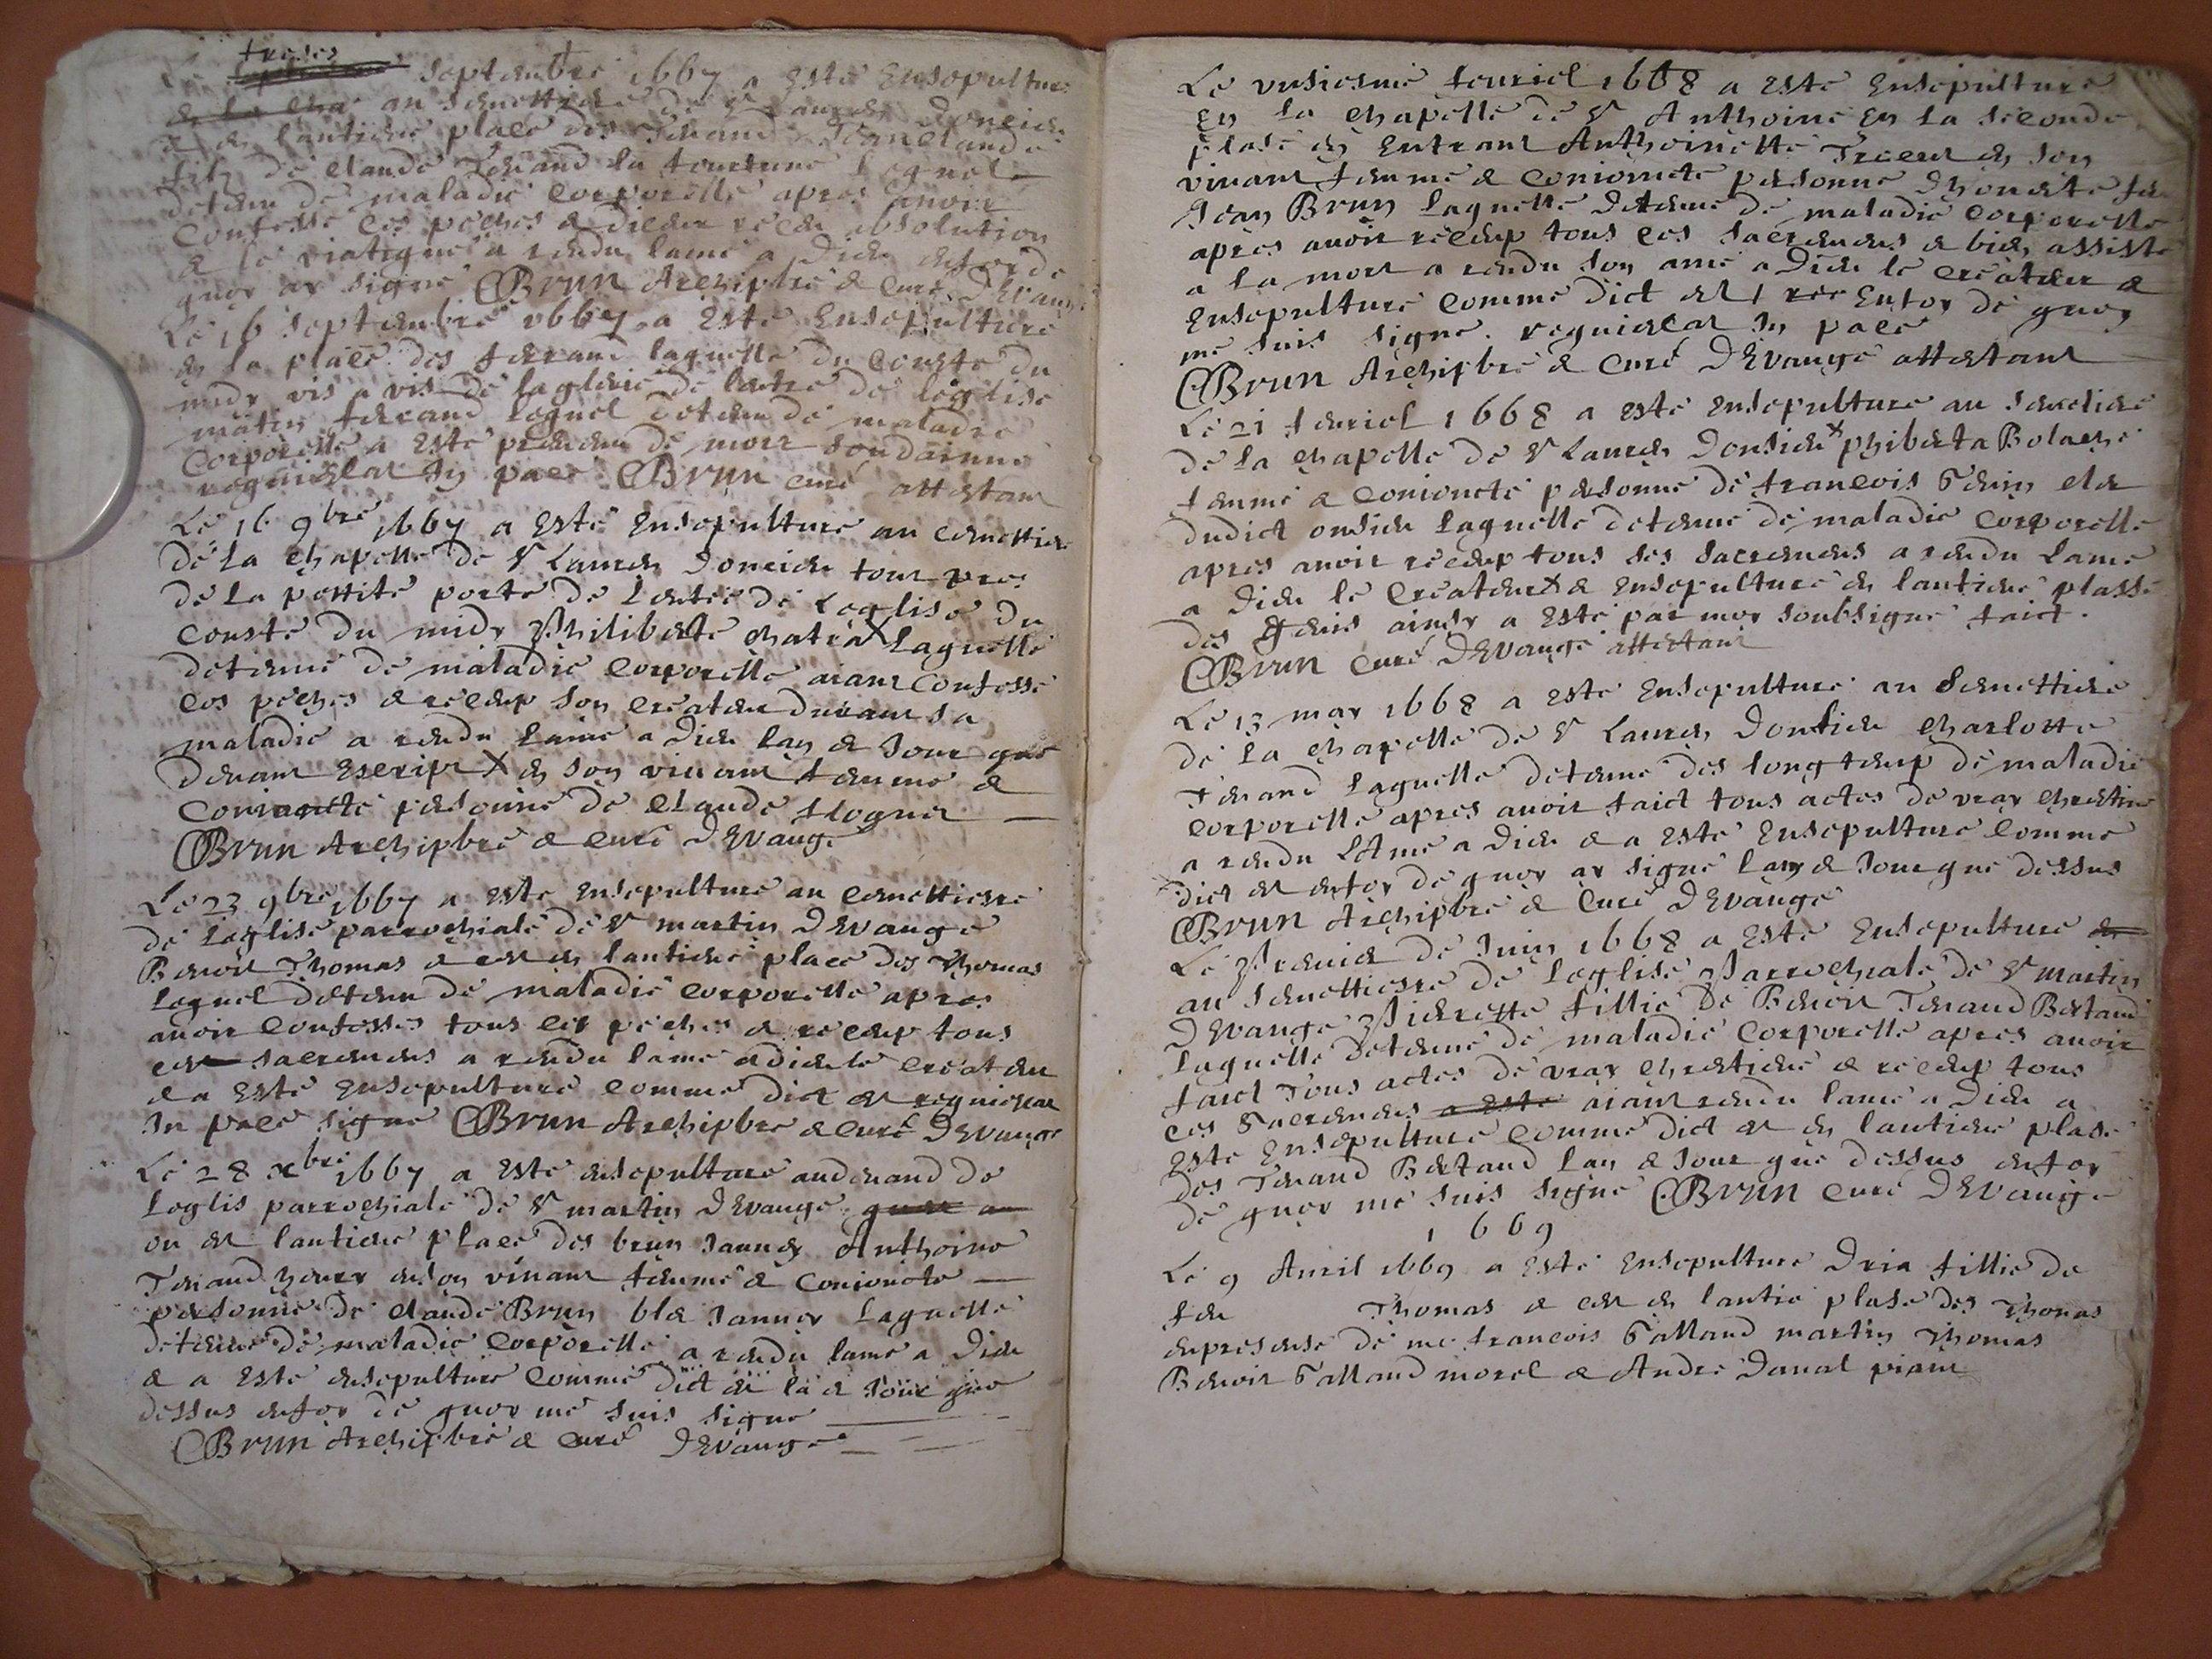 treses
Le septembre 1667 a esté ensepulture
au semettiere de St Laurens Doncieu
& en lantiene place des Ferrand Jean Claude
filz de claude Ferrand la fourtune Lequel
detenu de maladie corporelle apres avoir
confesse ces peches & dicelieu receu absolution
& le viatique a rendu lame a Dieu en foy de
quoy ay signe CBrun Archipbre & curé DEvange
Le 16 septembre 1667 a esté ensepulture
en la place des ferrand laquelle du couste du
midy vis a vis de la glerie de lentre de leglise
matin ferrand lequel detenu de maladie
corporelle a esté prevenu de mort soudainne
requiescat in pace CBrun curé attestant
Le 16 9bre 1667 a esté ensepulture au cemettiere
de la chapelle de St Laurens Doncieu tout pres
de la pettite porte de lentree de Leglise du
couste du midy Philiberte chatra X Laquelle
detenue de maladie corporelle aiant confesse
ces peches & receup son createur durant sa
maladie a rendu lame a Dieu lan & Jour que
devant escript X en son vivant femme &
conioncte personne de claude flognet
CBrun Archipbre & curé DEvange
Le 23 9bre 1667 a esté ensepulture au cemettierre
de Leglise parrochiale de St martin DEvange
Benoit Thomas & cen en lantiene place des Thomas
Lequel detenu de maladie corporelle apres
avoir confesses tous ces peches & receup tous
ces sacremens a rendu lame a dieu le createur
& a esté ensepulture comme dict est requiescat
In pace signe CBrun Archipbre & curé DEvange
Le 28 xbre 1667 a esté ensepulture au devand de
Leglis parrochiale de St martin DEvange
ou est lantiene place des brun Janney Anthoine
Ferrand en son vivant femme & conioncte
personne de claude Brun Janney Laquelle
detenue de maladie corporelle a rendu lame a Dieu
& a esté ensepulture comme dict est la & Jour que
dessus en foy de quoy me suis signe
CBrun Archipbre & curé DEvange
Le unsiesme fevriel 1668 a esté ensepulture
en la chapelle de St Anthoine en la seconde
plase en entrant Anthoinette en son
vivant femme & conioincte personne Dhoneste
Jean Brun Laquelle detenue de maladie corporelle
apres avoir receup tous ces sacremens & bien assiste
a la mort a rendu son ame a Dieu le createur &
ensepulture comme dict est en foy de quoy
me suis signe. requiescat In pace
CBrun Archipbre & curé DEvange attestant
Le 21 fevriel 1668 a esté ensepulture au semetiere
de la chapelle de St Laurens Donsieu X philiberta Bolache
femme & conioncte personne de francois
dudict onsieu Laquelle detenue de maladie corporelle
apres avoir receup tous ses sacremens a rendu lame
a Dieu le createur X & ensepulture en lantiene plasse
des ainsy a esté par moy soubsigne faict.
CBrun curé DEvange attestant
Le 13 may 1668 a esté ensepulture au semettiere
de la chapelle de St Laurens Donsieu charlotte
Ferrand Laquelle detenue des long temp de maladie
corporelle apres avoir faict tous actes de vray chrestiene
a rendu LAme a Dieu & a esté ensepulture comme
dict est en foy de quoy ay signe lan & Jour que dessus
CBrun Archipbre & Curé DEvange
Le Premier de Juin 1668 a esté ensepulture
au semettierre de Leglise Parrochiale de St martin
DEvange Pierrette fillie de Benoit Ferrand Bertand
Laquelle detenue de maladie corporelle apres avoir
faict tous actes de vray chrestiene & receup tous
ces Sacremens a este aiant rendu lame a Dieu a
esté ensepulture comme dict est en lantiene plase
des Ferrand Bertand lan & Jour que dessus en foy
de quoy me suis signe CBrun curé DEvange
1669
Le 9 Avril 1669 a esté ensepulture Dria fillie de
feu Thomas & cen en lantie plase des Thomas
en presense de me francois Galland martin Thomas
Benoit Galland morel & Andre